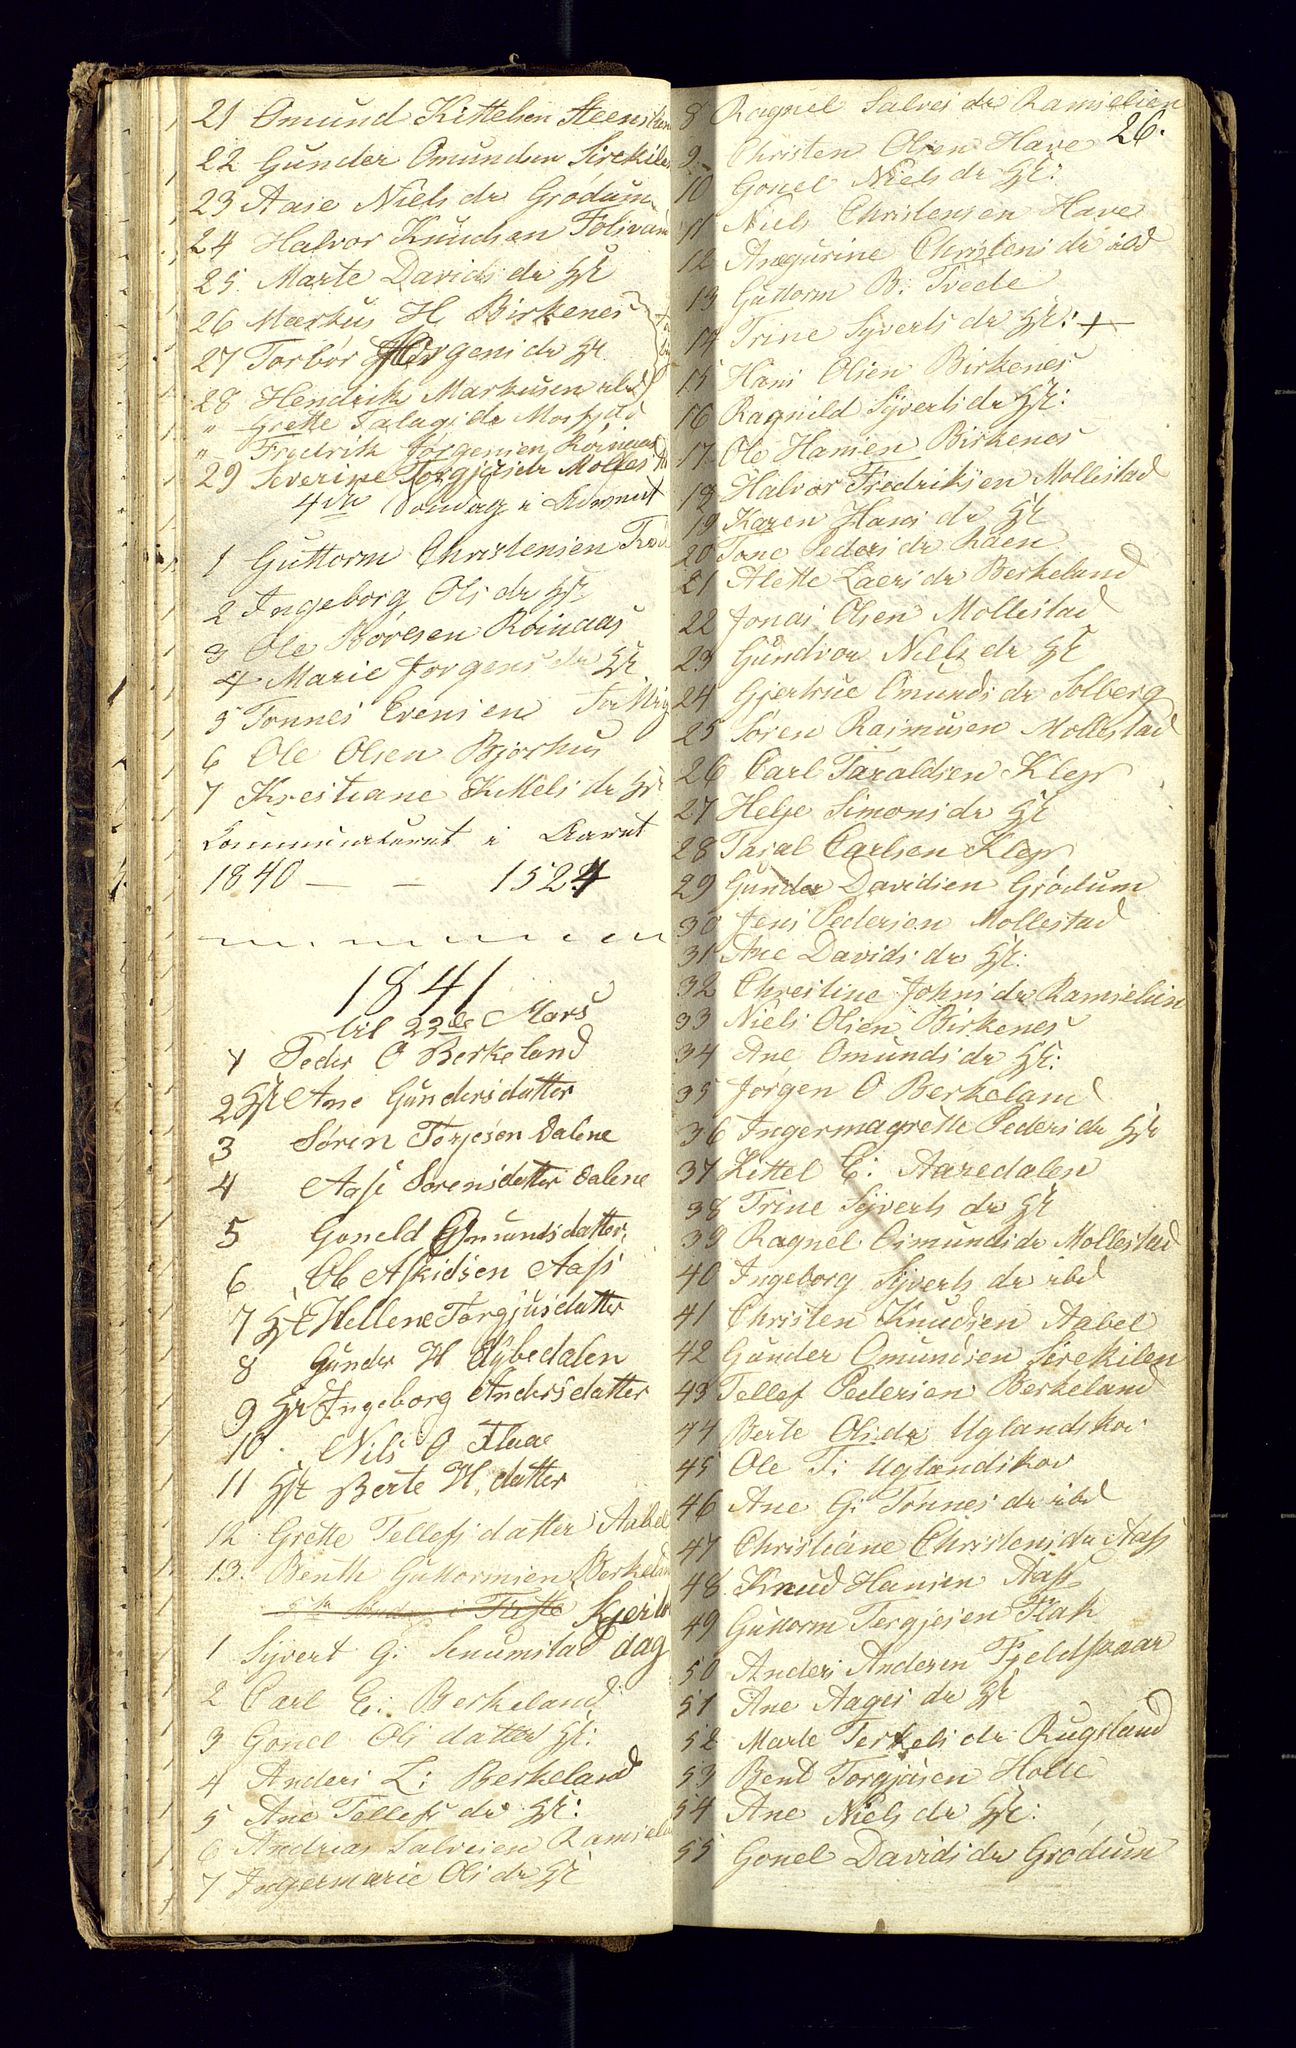 21 Omund Kittelsen
22 Gunder Omundsen Sirekilen
23 Aase Niels dr Grödum
24 Halvor Knudsen
25 Marte Davids dr Hst
26 Markus H Birkenes
27 Torbör Jörgens dr Hst
28 Hendrik Markusen ibd
" Grette Talags dr
" Fredrik Jörgensen Röinaas
29 Severine Torgjus dr Molles
4de Söndag i Advent
1 Guttorm Christensen
2 Ingeborg Ols dr Hst
3 Ole Börresen Röinaas
4 Marie Jörgens dr Hst
5 Tönnes Evensen
6 Ole Olsen Bjorhus
7 Krestiane Kittels dr Hst
Communiceret i Aaret
1840 — — 1524
1841
til 23de Mars
1 Peder O Berkeland
2 Hst Ane Gundersdatter
3 Sören Terjesen Dalene
4 Aase Sörensdatter Dalene
5 Goneld Omundsdatter
6 Ole Askidsen Aass
7 Hst Hellene Torgjusdatter
8 Gunder H Rybedalen
9 Hst Ingeborg Andersdatter
10 Nils O Flaae
11 Hst Berte H. datter
12 Grette Tellefs datter Aabel
13 Benth Guttormsen Berkeland
Söndag i Faste Skjertors
1 Syvert G: Senumstad dag
2 Carl E: Berkeland
3 Gonel Ols datter Hst:
4 Anders L: Berkeland
5 Ane Tellefs dr Hst:
6 Andreas Salvesen Ramselien
7 Ingermarie Ols dr Hst
26.
8 Ragnel Salves dr Ramselien
9 Christen Olsen Have
10 Gonel Niels dr Hst:
11 Niels Christensen Have
12 Anegurine Christens dr ibd
13 Guttorm B: Tvede
14 Trine Syverts dr Hst: +
15 Hans Olsen Birkenes
16 Ragnild Syverts dr Hst:
17 Ole Hansen Birkenes
18 Halvor Fredriksen Mollestad
19 Karen Hans dr Hst
20 Tone Peders dr Raen
21 Alette Laers dr Berkeland
22 Jonas Olsen Mollestad
23 Gundvor Niels dr Hst
24 Gjertrue Omunds dr Solberg
25 Sören Rasmusen Mollestad
26 Carl Taraldsen Klep
27 Helje Simons dr Hst
28 Taral Carlsen Klep
29 Gunder Davidsen Grödum
30 Jens Pedersen Mollestad
31 Ane Davids dr Hst:
32 Christine Johns dr Ramselien
33 Niels Olsen Birkenes
34 Ane Omunds dr Hst:
35 Jörgen O Berkeland
36 Ingermagrette Peders dr Hst
37 Kittel E: Aaredalen
38 Trine Syverts dr Hst
39 Ragnel Osmunds dr Mollestad
40 Ingeborg Syverts dr ibd
41 Christen Knudsen Aabel
42 Gunder Omundsen Sirekilen
43 Tellef Pedersen Berkeland
44 Berte Ols dr Uglandskov
45 Ole T: Uglandskov
46 Ane G: Tönnes dr ibd
47 Christiane Christens dr Aass
48 Knud Hansen Aass
49 Guttorm Tergjesen Flak
50 Anders Andersen Fjeldsvaar
51 Ane Aages dr Hst
52 Marte Terkels dr Rugsland
53 Bent Torgjusen Holte
54 Ane Niels dr Hst:
55 Gonel Davids dr Grödum